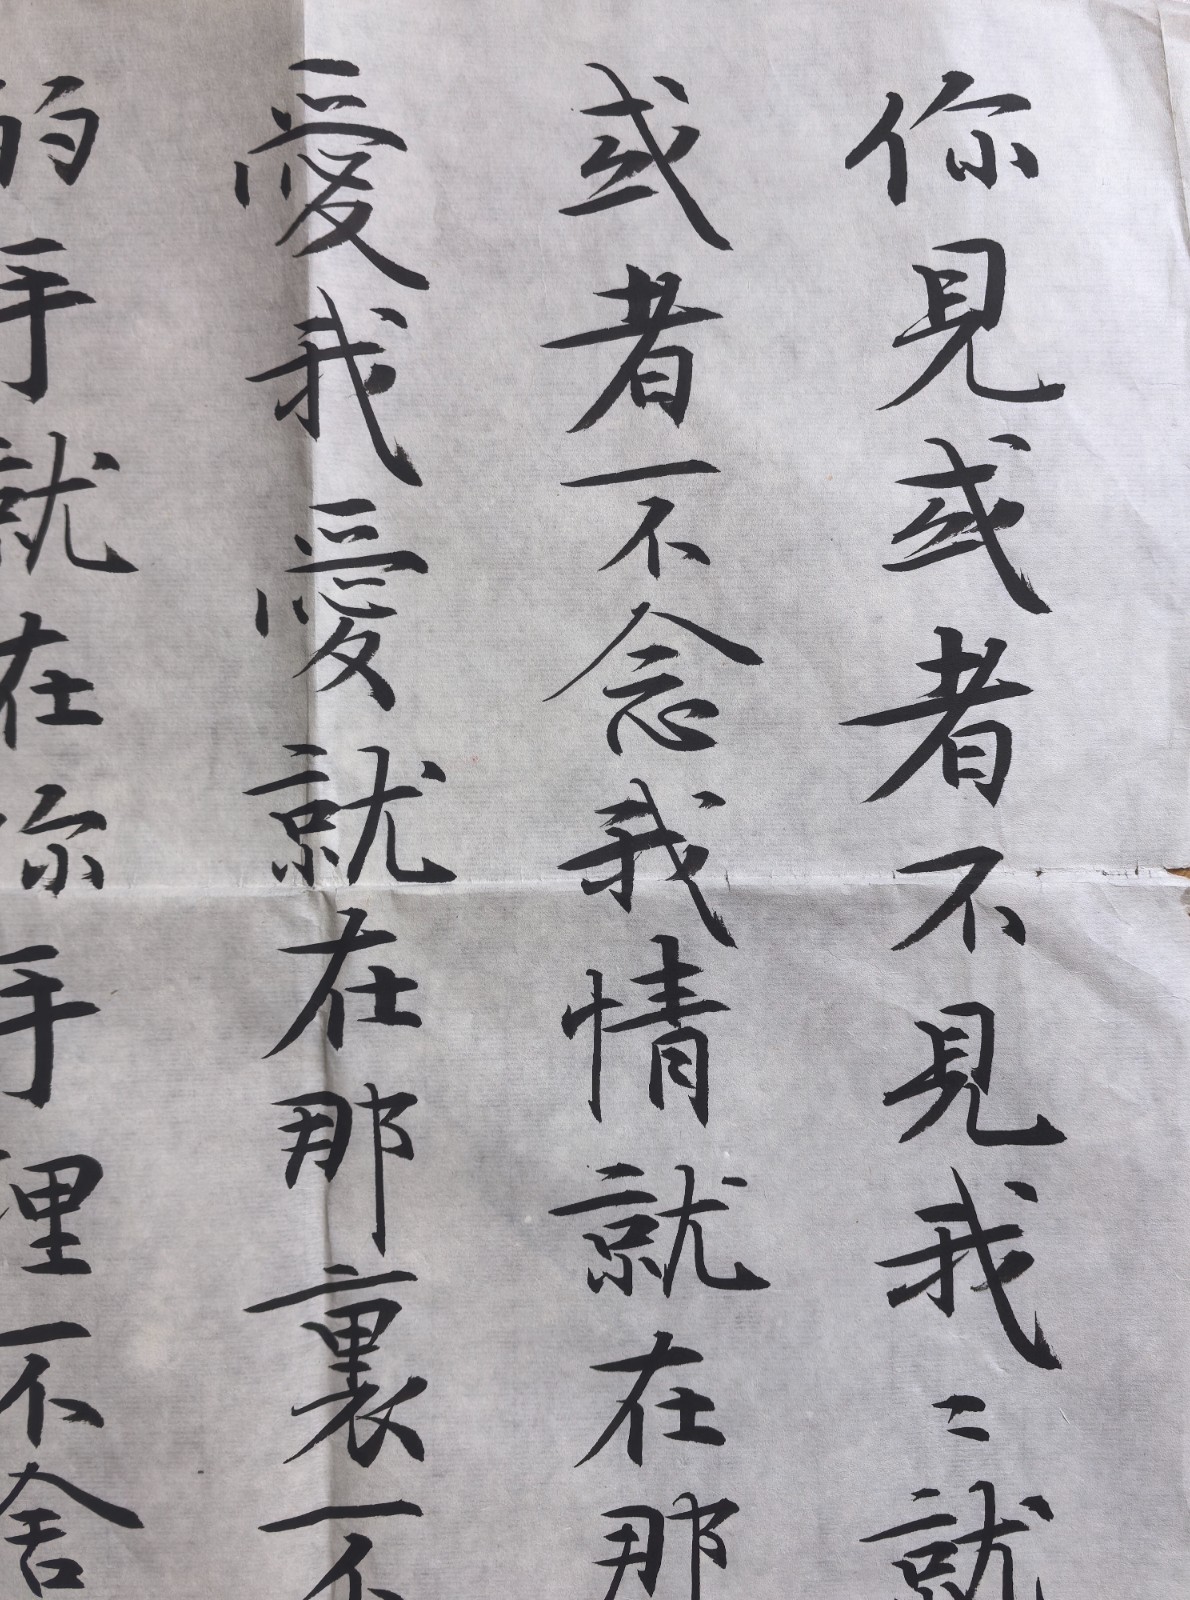 你見或者不見我〻就
或者不念我情就在那
愛我愛就在那裏不
的手就在你手裡不舍